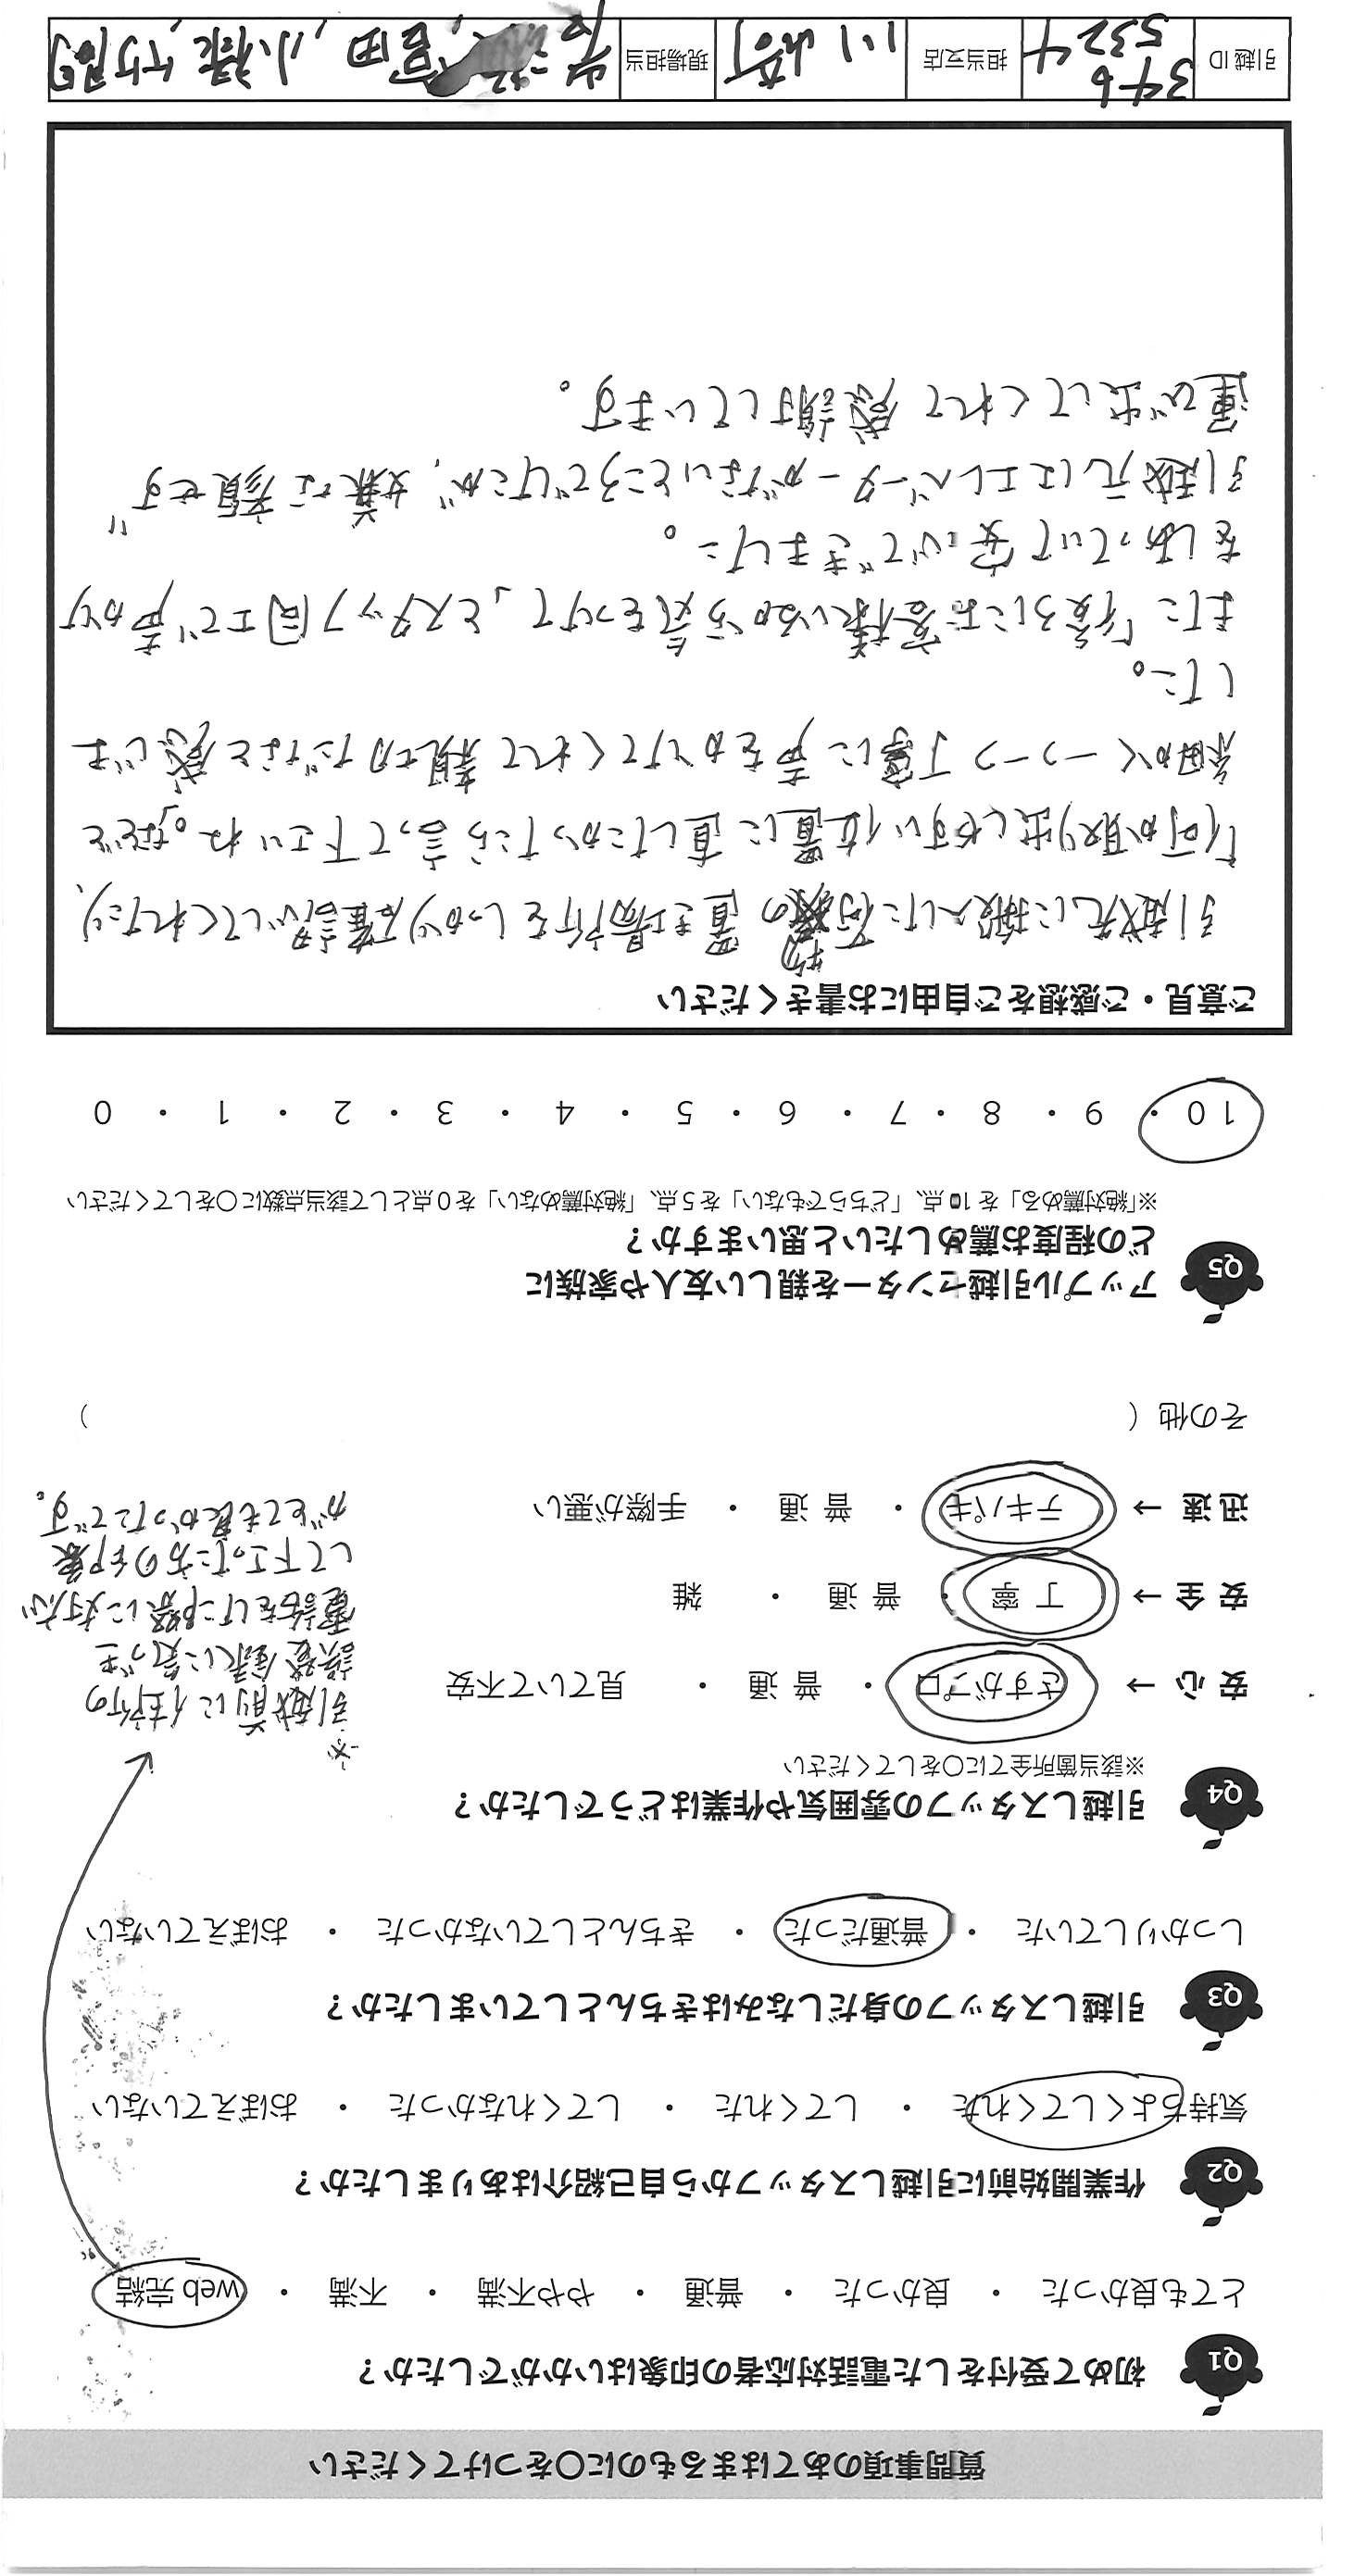 質問事項のあてはまるものに○をつけてください
Q1 初めて受付をした電話対応者の印象はいかがでしたか？
とても良かった ・ 良かった ・ 普通 ・ やや不満 ・ 不満 ・ web 完結
Q2 作業開始前に引越しスタッフから自己紹介はありましたか？
気持ちよくしてくれた ・ してくれた ・ してくれなかった ・ おぼえていない
Q3 引越しスタッフの身だしなみはきちんとしていましたか？
しっかりしていた ・ 普通だった ・ きちんとしていなかった ・ おぼえていない
Q4 引越しスタッフの雰囲気や作業はどうでしたか？
※該当箇所全てに○をしてください
安心 → さすがプロ ・ 普通 ・ 見ていて不安
安全 → 丁寧 ・ 普通 ・ 雑
迅速 → テキパキ ・ 普通 ・ 手際が悪い
その他（ ）
※
引越前に住所の
誤登録に気づき
電話をした際に対応
して下さった方の印象
がとても良かったです。
Q5 アップル引越センターを親しい友人や家族に
どの程度お薦めしたいと思いますか？
※「絶対薦める」を 10 点、「どちらでもない」を 5 点、「絶対薦めない」を 0 点として該当点数に○をしてください
10 ・ 9 ・ 8 ・ 7 ・ 6 ・ 5 ・ 4 ・ 3 ・ 2 ・ 1 ・ 0
ご意見・ご感想をご自由にお書きください
引越先に搬入した荷物の置き場所をしっかり確認してくれたり、
「何か取り出しやすい位置に直したかったら言って下さいね。」などと
細かく一つ一つ丁寧に声をかけてくれて親切だなと感じま
した。
また「後ろにお客様いるから気をつけて」とスタッフ同士で声かけ
をしあっていて安心できました。
引越元はエレベーターがないところでしたが、"嫌な顔せず"
運び出してくれて感謝しています。
引越 ID 346 5324 担当支店 川崎 現場担当 宮田, 小禄, 竹内